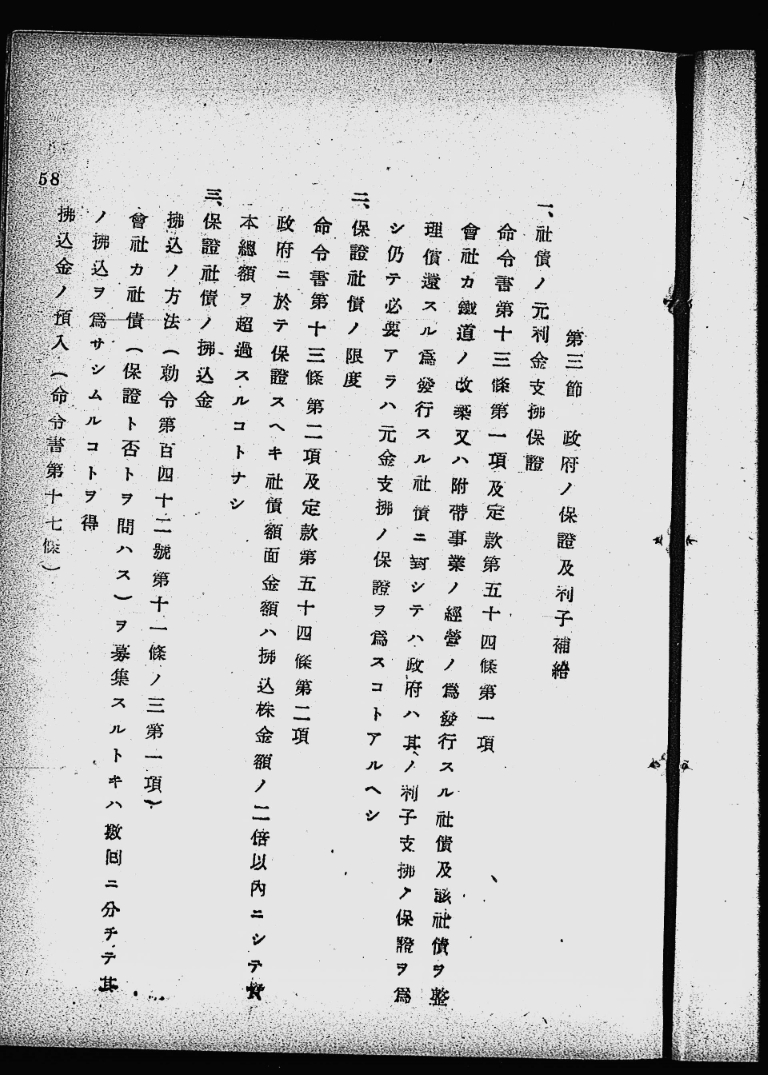 第三節 政府ノ保證及利子補給
一、社債ノ元利金支拂保證
命令書第十三條第一項及定款第五十四條第一項
會社カ鐵道ノ改築又ハ附帶事業ノ經營ノ爲發行スル社債及該社債ヲ整
理償還スル爲發行スル社債ニ對シテハ政府ハ其ノ利子支拂ノ保證ヲ爲
シ仍テ必要アラハ元金支拂ノ保證ヲ爲スコトアルヘシ
二、保證社債ノ限度
命令書第十三條第二項及定款第五十四條第二項
政府ニ於テ保證スヘキ社債額面金額ハ拂込株金額ノ二倍以內ニシテ資
本總額ヲ超過スルコトナシ
三、保證社債ノ拂込金
拂込ノ方法(勅令第百四十二號第十一條ノ三第一項)
會社カ社債(保證ト否トヲ問ハス)ヲ募集スルトキハ數回ニ分チテ其
ノ拂込ヲ爲サシムルコトヲ得
拂込金ノ預入(命令書第十七條)
58